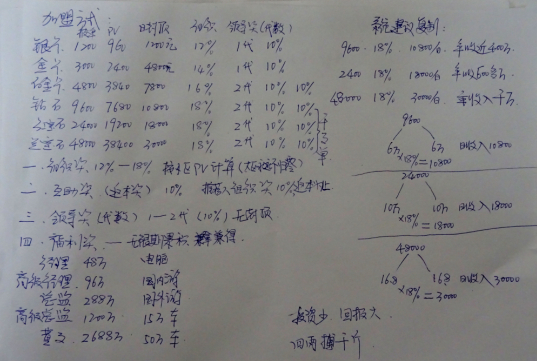 加盟方式:
PV 日封顶 领导奖(代数)
银卡 1200 960 1200元 12% 1代 10%
金卡 3000 2400 4800元 14% 1代 10%
4800 3840 7800 16% 2代 10% 10%
钻石 9600 7680 10800 18% 2代 10% 10%
24000 19200 18000 18% 2代 10% 10%
48000 38400 30000 18% 2代 10% 10%
一、 12%—18% PV计算
二、互助奖 10% 10%
三、领导奖(代数) 1—2代(10%) 无封顶
四、福利奖 —
经理 48万 电脑
高级经理 96万 国内游
总监 288万 国外游
高级总监 1200万 15万车
董事 2688万 50万车
系统建议复制:
9600 18% 10800/日 年收近400万
2400 18% 18000/日 年收600多万
48000 18% 30000/日 年收入千万
9600
6万 ×18% 6万 日收入10800
=10800
24000
10万 ×18% 10万 日收入18000
=18000
48000
16.8 ×18% 16.8 日收入30000
=30000
投资少、回报大
四两搏千斤